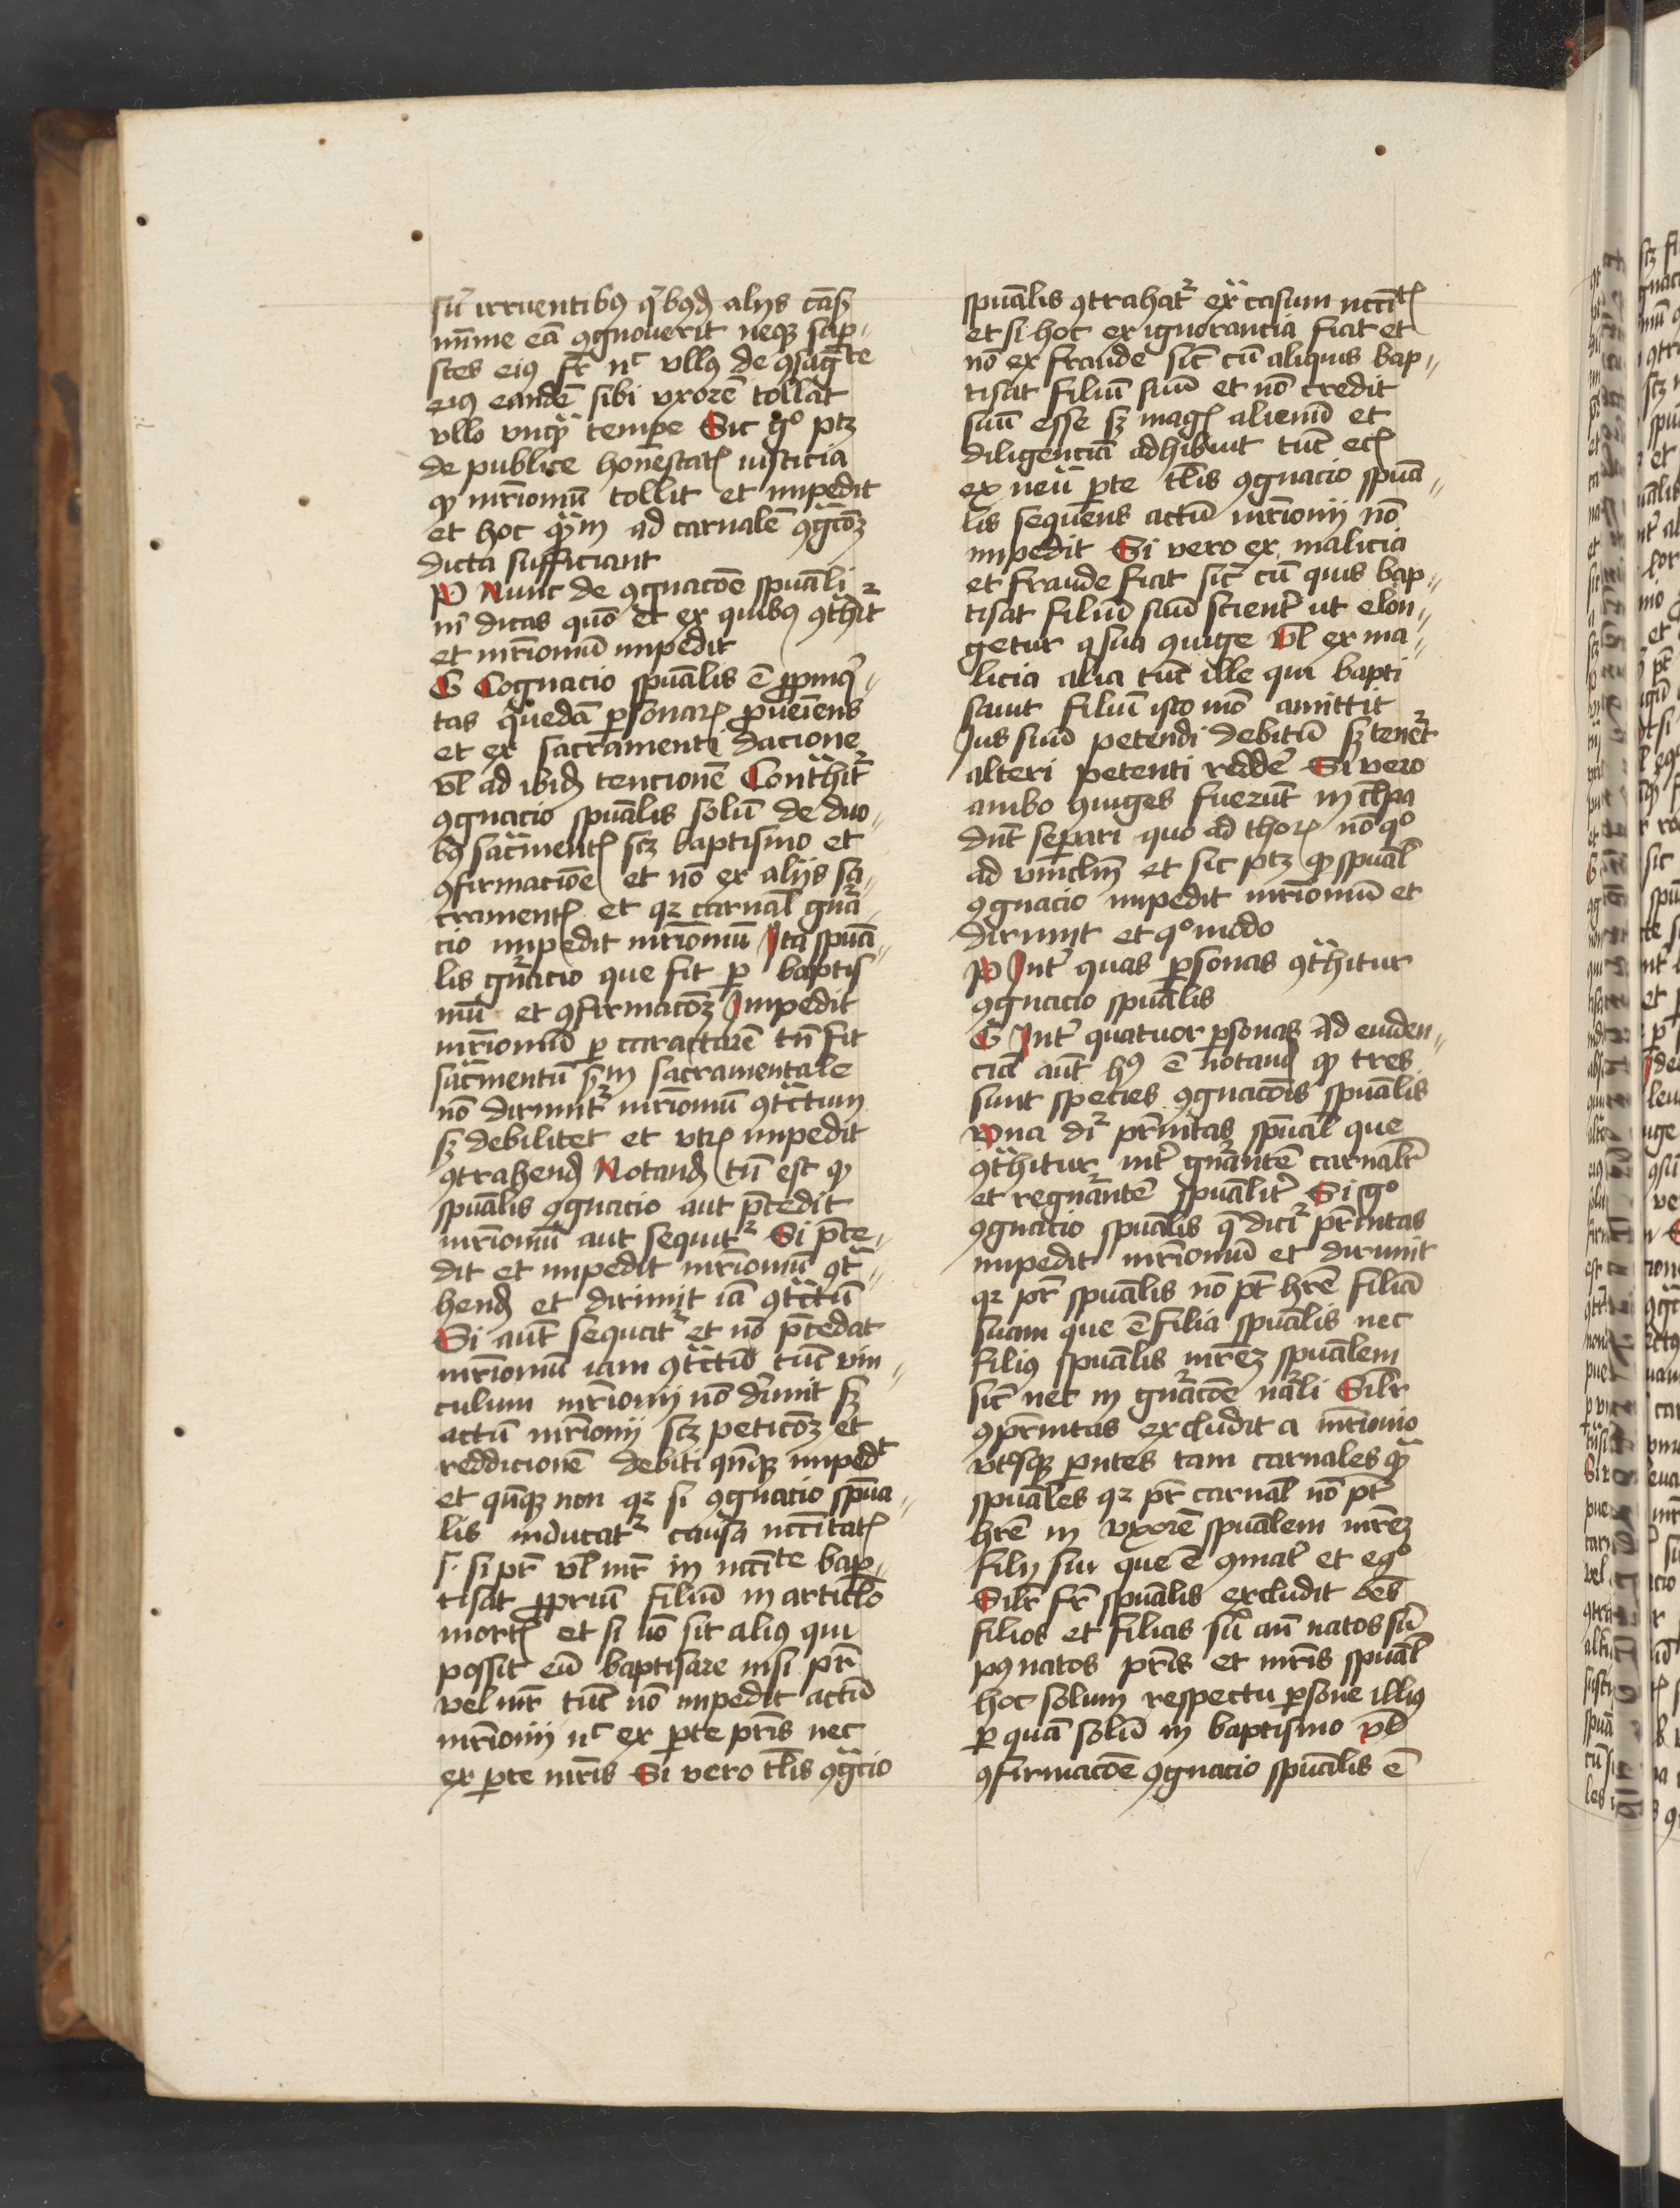 siue irruentibus quibusdam alijs causis
minime eam cognouerit neque super
stes eius frater nec ullus de consanguinitate
eius eandem sibi uxorem tollat
ullo unquam tempore Sic ergo patet
de publice honestatis iusticia
quod matrimonium tollit et impedit
et hoc quantum ad carnalem cognacionem
dicta sufficiant
P Nunc de cognacione spuali
mihi dicas quomodo et ex quibus contrahitur
et mrimonium impedit
G Cognacio spualis e propinqui
tas quedam personarum proueniens
et ex sacramenti dacione
vel ad ibidem tencionem Contrahitur
cognacio spualis solum de duo
bus sacramentis scz baptismo et
confirmacione et no ex alijs sa
cramentis et quia carnal cogna
cio impedit mrimonium Ita spua
lis cognacio que fit per baptis
mum et confirmacionem Impedit
mrimonium per caracterem tamen fit
sacramentum sed in sacramentale
non dirimitur mrimonium contractum
sed debilitet et impedit
contrahendum Notandum tamen est quod
spualis cognacio aut precedit
mrimonium aut sequitur Si prece
dit et impedit mrimonium contra
hendum et dirimit iam contractum
Si autem sequatur et non precedat
mrimonium iam contractum tunc uin
culum mrimonij non dirimit sed
actum mrimonij scz peticionem et
reddicionem debiti quandoque impedit
et quandoque non quia si cognacio spua
lis inducatur causa necessitatis
s. si pater vel mater in necessitate bap
tisat proprium filium in articulo
mortis et si non sit alius qui
possit eum baptisare nisi pater
vel mater tunc non impedit actum
mrimonij nec ex parte patris nec
ex parte matris Si vero talis cognacio
spualis contrahatur extra casum necessitatis
et si hoc ex ignorancia fiat et
non ex fraude sicut cum aliquis bap
tisat filium suum et non credit
suum esse sed magis alienum et
diligenciam adhibuit tunc eciam
ex neutra parte talis cognacio spua
lis sequens actum mrimonij non
impedit Si vero ex malicia
et fraude fiat sicut cum quis bap
tisat filium suum scienter ut elon
getur a sua coniuge vel ex ma
licia alia tunc ille qui bapti
sauit filium isto modo amittit
Ius suum petendi debitum sed tenetur
alteri petenti reddere Si vero
ambo coniuges fuerunt in culpa
debent separari quo ad thorum non quo
ad vinculum et sic patet quod spual
cognacio impedit mrimonium et
dirimit et quo modo
P Inter quas personas contrahitur
cognacio spualis
G Inter quatuor personas Ad euiden
ciam autem huius e notandum quod tres
sunt species cognacionis spualis
Una dicitur paternitas spual que
contrahitur inter generantem carnaliter
et regenerantem spualiter Si ergo
cognacio spualis que dicitur paternitas
impedit mrimonium et dirimit
quia pater spualis non potest habere filiam
suam que e filia spualis nec
filius spualis matrem spualem
sicut nec in generacione naturali Similiter
compaternitas excludit a mrimonio
utrosque parentes tam carnales quam
spuales quia pater carnal non potest
habere in uxorem spualem matrem
filij sui que e commater et ego
Similiter frater spualis excludit omnes
filios et filias siue ante natos siue
post natos patris et matris spual
hoc solum respectu persone illius
per quam solum in baptismo vel
confirmacione cognacio spualis e